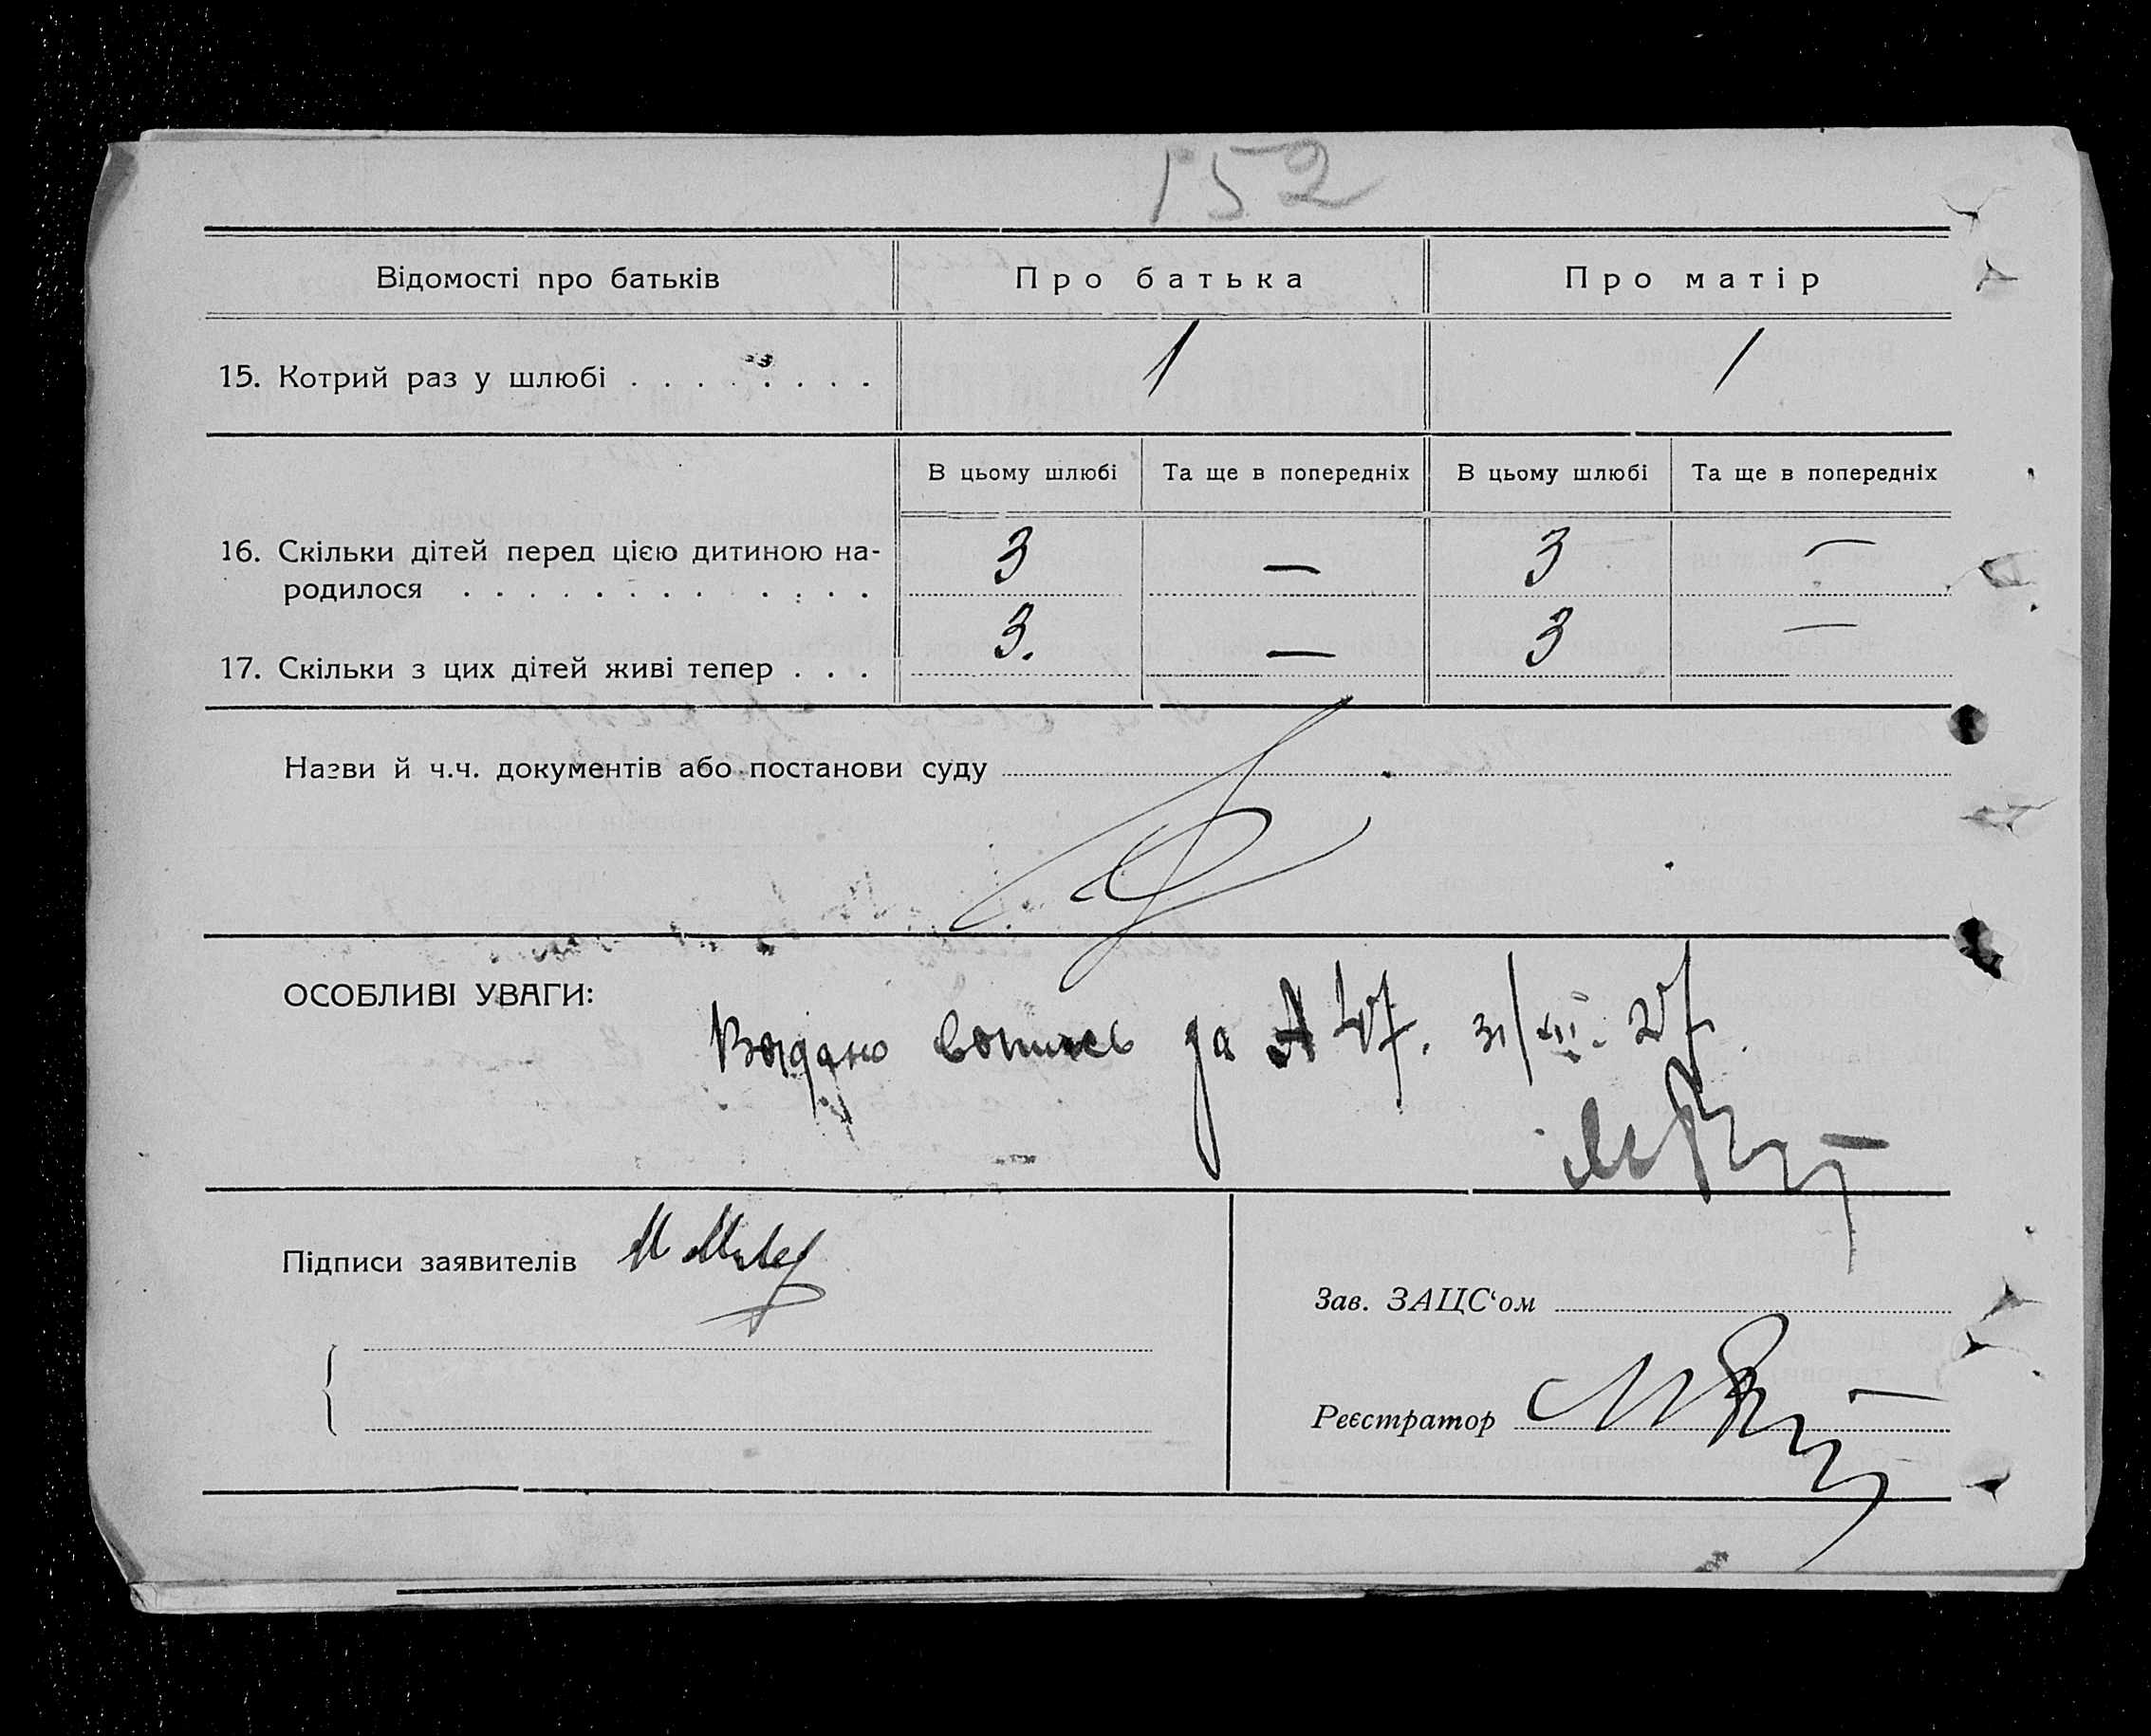 152
Відомості про батьків Про батька Про матір
15. Котрий раз у шлюбі . . . . . . . . 1 1
В цьому шлюбі Та ще в попередніх В цьому шлюбі Та ще в попередніх
16. Скільки дітей перед цією дитиною на-
родилося . . . . . . . . . . . . . 3 — 3 —
17. Скільки з цих дітей живі тепер . . . 3. — 3 —
Назви й ч.ч. документів або постанови суду
ОСОБЛИВІ УВАГИ:
Видано за 47. 31/XII. 27
Підписи заявителів
Зав. ЗАЦС‘ом
Реєстратор